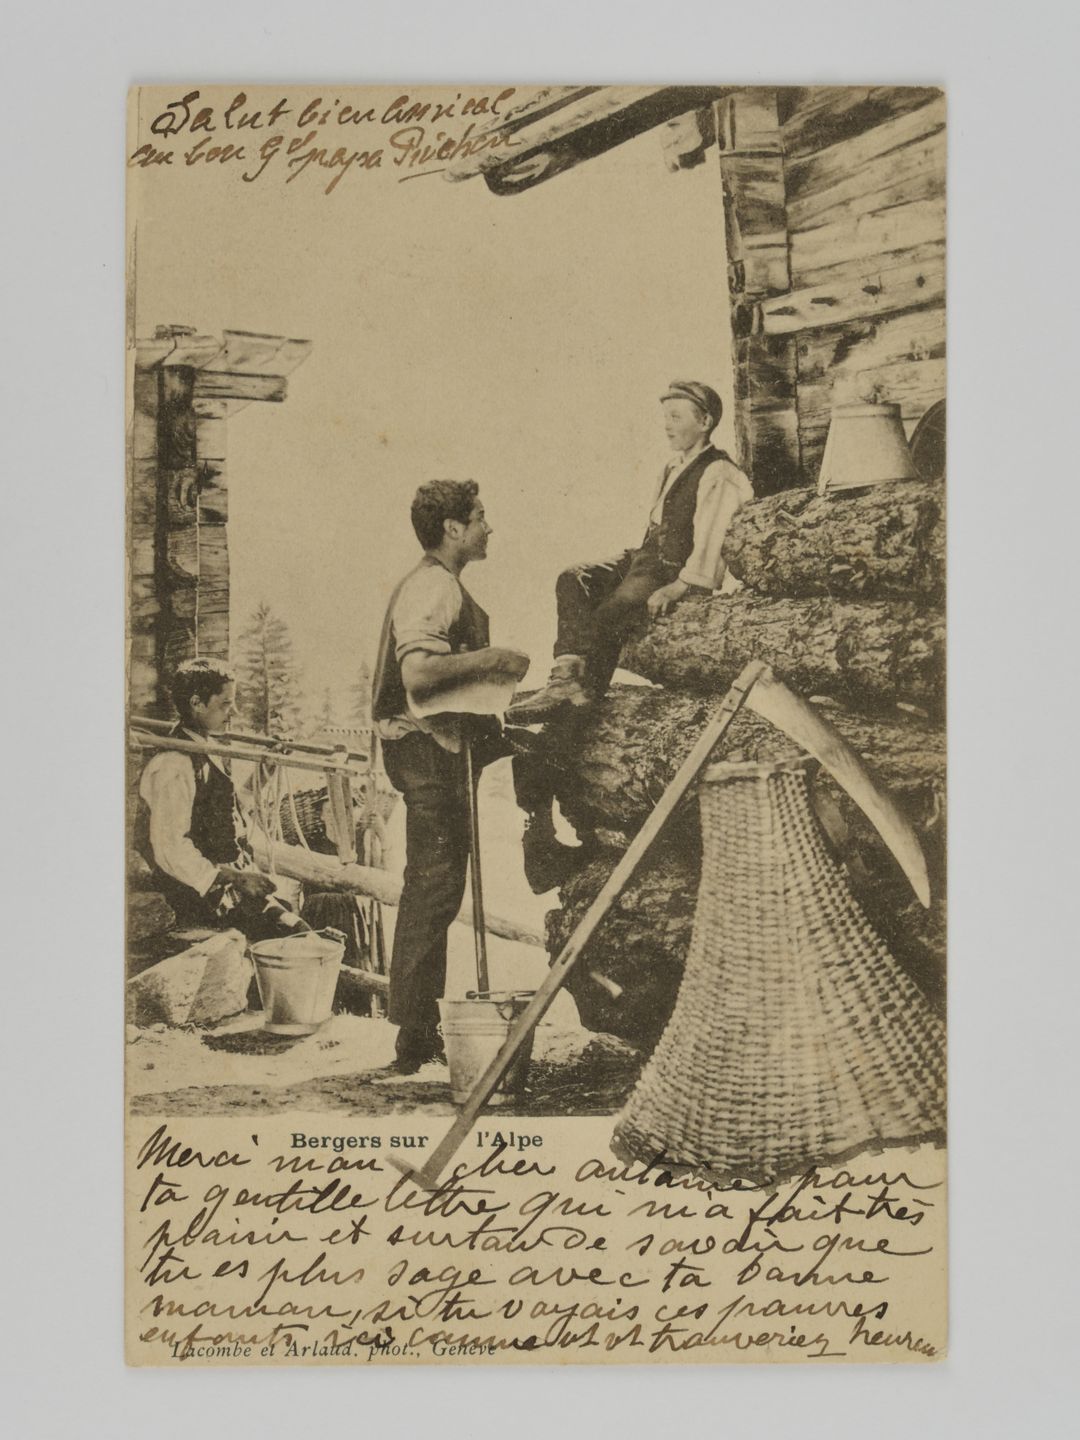 Salut bien amical
au bon Gd papa
Bergers sur l'Alpe
Merci mon cher antoine pour
ta gentille lettre qui m'a fait très
plaisir et surtou de savoir que
tu es plus sage avec ta bonne
maman, si tu voyais ces pauvres
enfants ici comme trouveriez heureu
Lacombe et Arlaud, phot., Genève